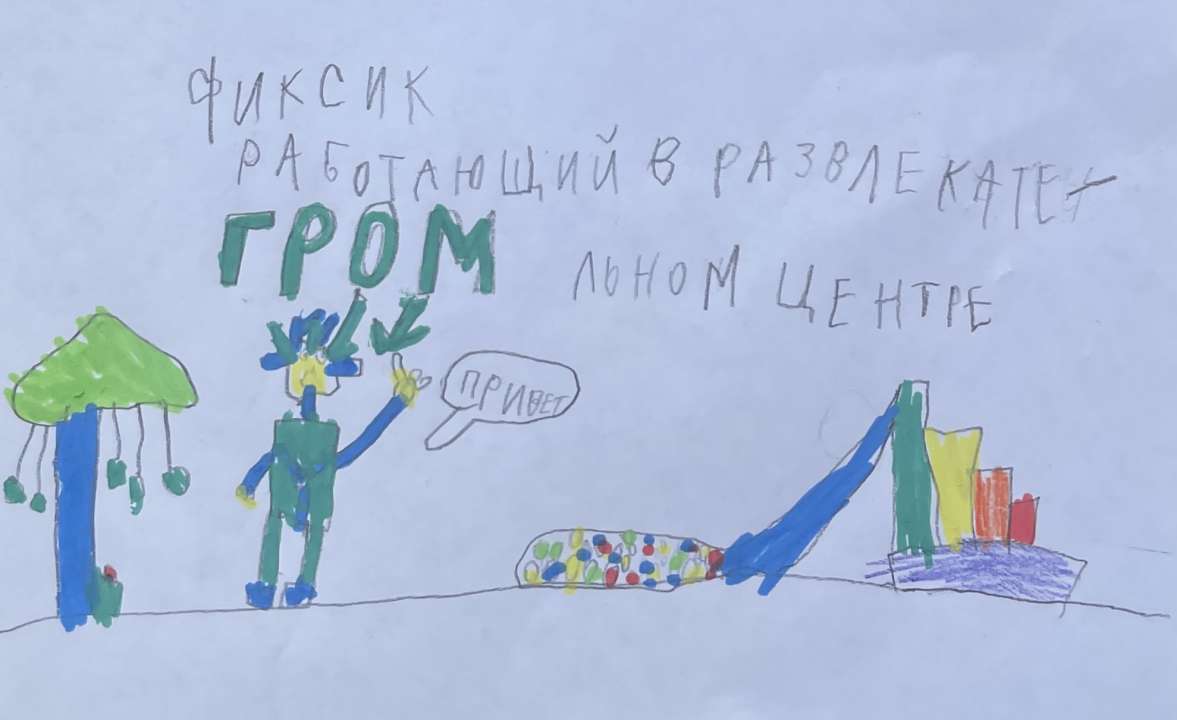 ФИКСИК
РАБОТАЮЩИЙ В РАЗВЛЕКАТЕ-
ГРОМ
ЛЬНОМ ЦЕНТРЕ
ПРИВЕТ